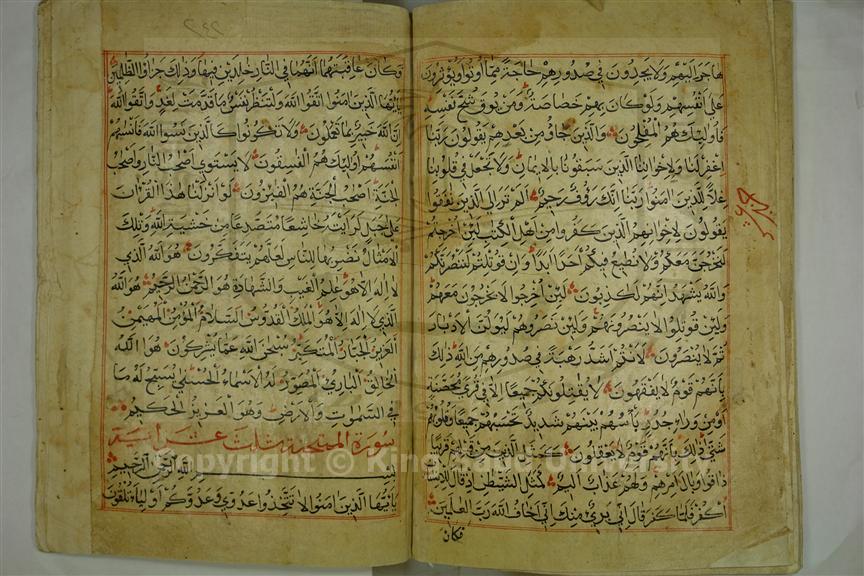 هاجر اليهم ولا يجدون في صدورهم حاجة مما اوتوا ويؤثرون
على انفسهم ولو كان بهم خصاصة ومن يوق شح نفسه
فاولئك هم المفلحون والذين جاؤ من بعدهم يقولون ربنا
اغفر لنا ولاخواننا الذين سبقونا بالايمان ولا تجعل في قلوبنا
غلا للذين امنوا ربنا انك رؤف رحيم الم تر الى الذين نافقوا
يقولون لاخوانهم الذين كفروا من اهل الكتب لئن اخرجتم
لنخرجن معكم ولا نطيع فيكم احدا ابدا وان قوتلتم لننصرنكم
والله يشهد انهم لكذبون لئن اخرجوا لا يخرجون معهم
ولئن قوتلوا لا ينصرونهم ولئن نصروهم ليولن الادبار
ثم لا ينصرون لانتم اشد رهبة في صدورهم من الله ذلك
بانهم قوم لا يفقهون لا يقتلونكم جميعا الا في قرى محصنة
او من وراء جدر باسهم بينهم شديد تحسبهم جميعا وقلوبهم
شتى ذلك بانهم قوم لا يعقلون كمثل الذين من قبلهم قريبا
ذاقوا وبال امرهم ولهم عذاب اليم كمثل الشيطن اذ قال للانسان
اكفر فلما كفر قال اني بريء منك اني اخاف الله رب العلمين
فكان
فكان عاقبتهما انهما في النار خلدين فيها وذلك جزاؤا الظلمين
يايها الذين امنوا اتقوا الله ولتنظر نفس ما قدمت لغد واتقوا الله
ان الله خبير بما تعملون ولا تكونوا كالذين نسوا الله فانسهم
انفسهم اولئك هم الفسقون لا يستوي اصحب النار واصحب
الجنة اصحب الجنة هم الفائزون لو انزلنا هذا القران
على جبل لرايته خاشعا متصدعا من خشية الله وتلك
الامثال نضربها للناس لعلهم يتفكرون هو الله الذي
لا اله الا هو علم الغيب والشهادة هو الرحمن الرحيم هو الله
الذي لا اله الا هو الملك القدوس السلام المؤمن المهيمن
العزيز الجبار المتكبر سبحن الله عما يشركون هو الله
الخالق الباري المصور له الاسماء الحسنى يسبح له ما
في السموت والارض وهو العزيز الحكيم
سورة الممتحنة ثلث عشر اية
بسم الله الرحمن الرحيم
يايها الذين امنوا لا تتخذوا عدوي وعدوكم اولياء تلقون
Copyright © King Saud University